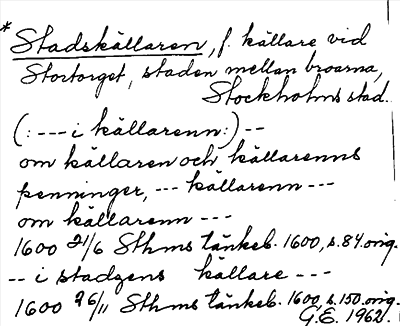 * Stadskällaren, f. källare vid
Stortorget, staden mellan broarna,
Stockholms stad.
(: --- i källarenn :) --
om källaren och källarenns
penninger, --- källarenn ---
om källarenn ---
1600 21/6 Sthms tänkeb. 1600, s. 84. orig.
-- i stadzens källare ---
1600 26/11 Sthms tänkeb. 1600, s. 150. orig.
G.E. 1962.